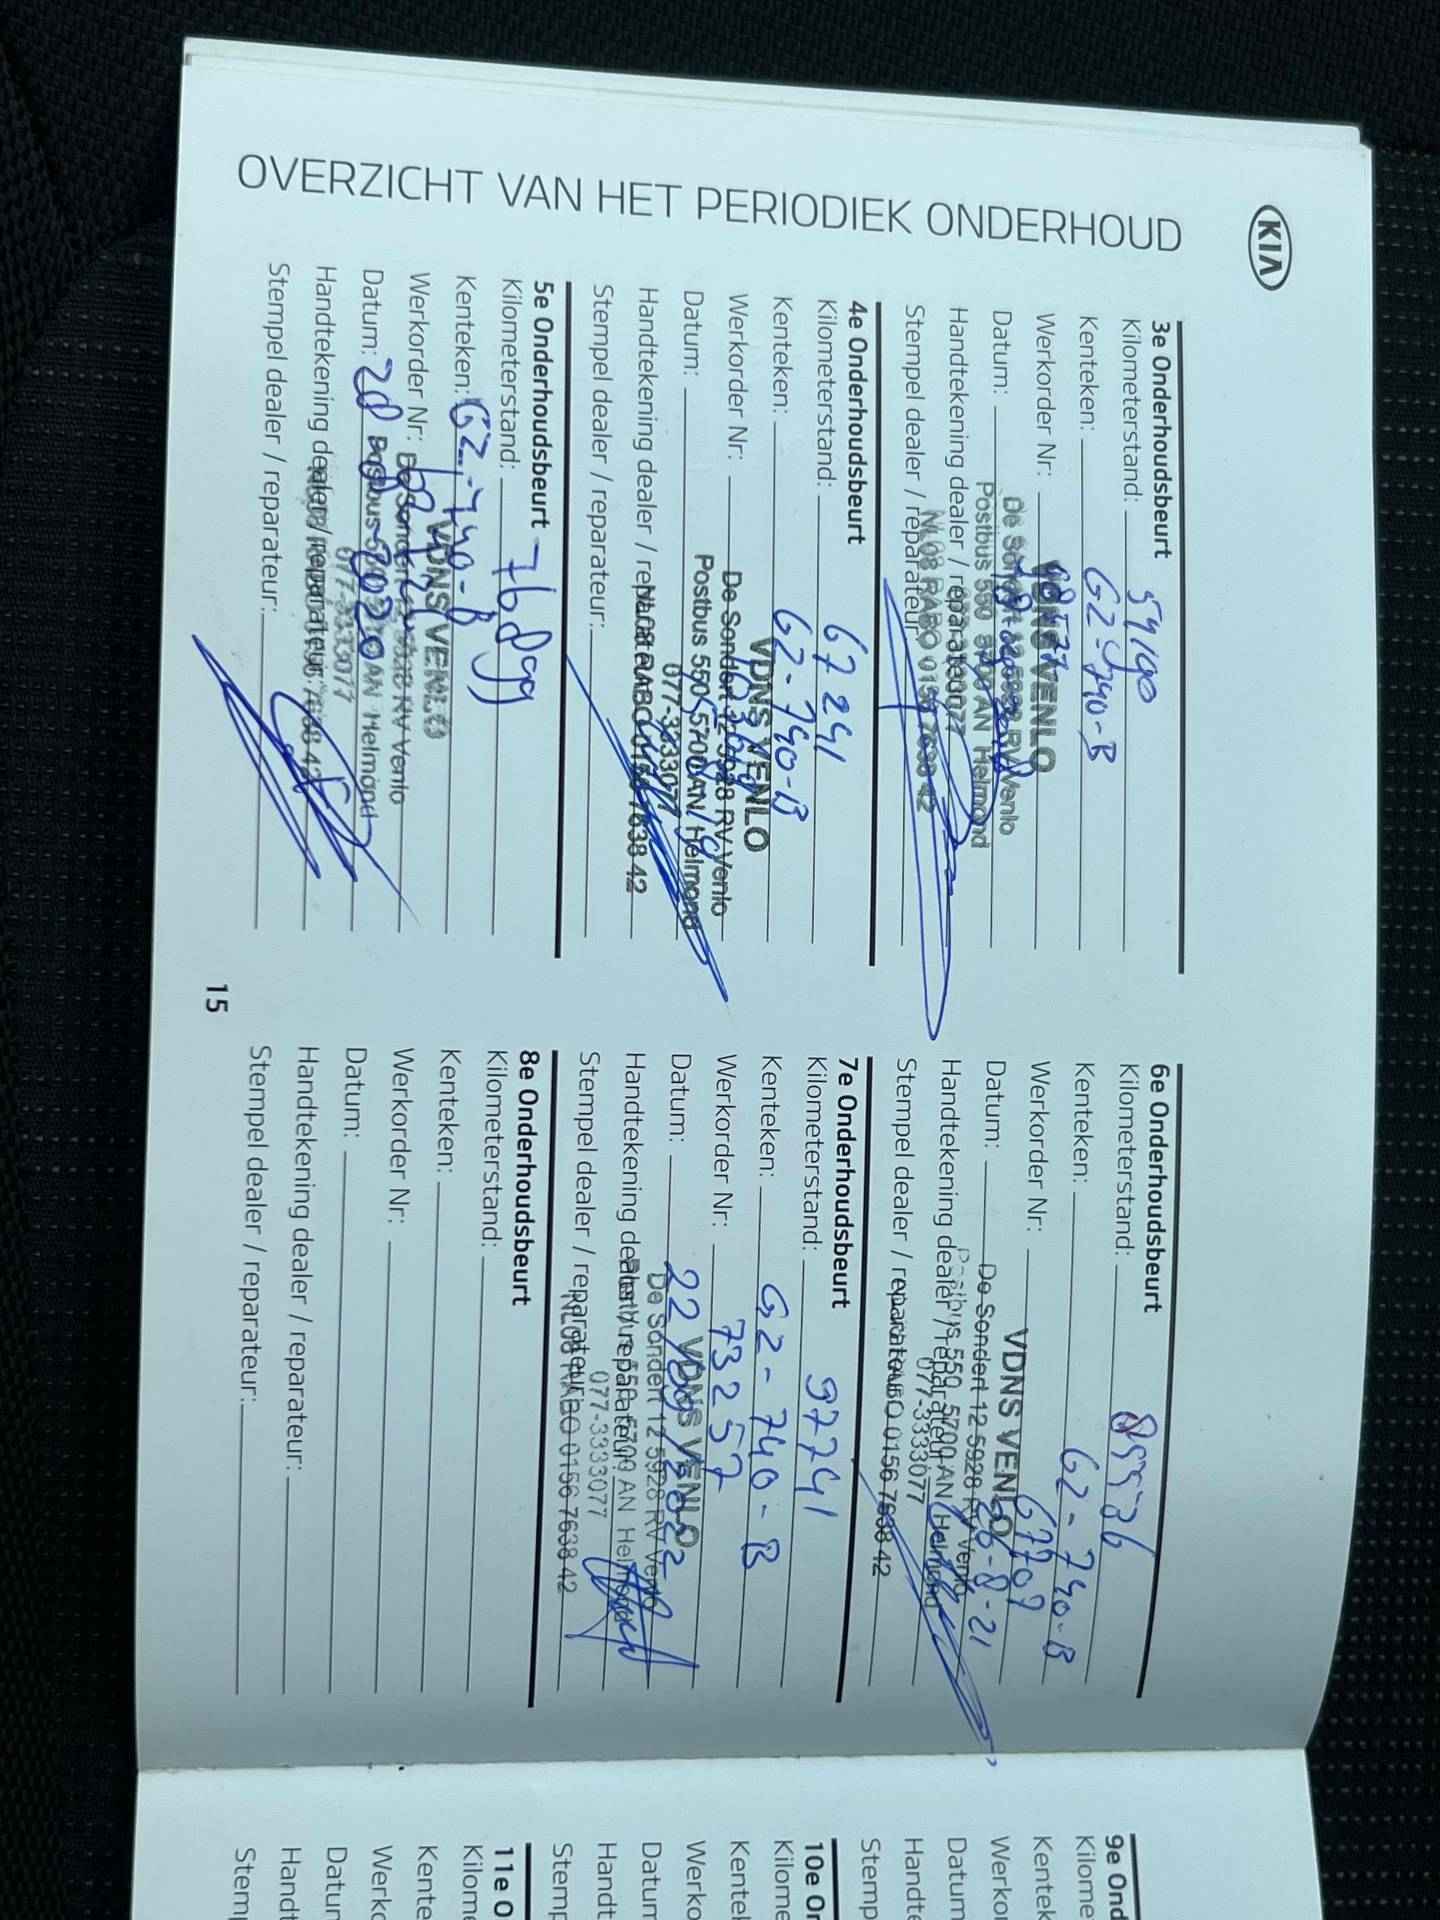 KIA
OVERZICHT VAN HET PERIODIEK ONDERHOUD
3e Onderhoudsbeurt
Kilometerstand:
Kenteken: GZ-740-B
Werkorder Nr:
VDNS VENLO
Datum:
De Sondert 12 5928 RV Venlo
Postbus 550 5700 AN Helmond
Handtekening dealer / reparateur:
Stempel dealer / reparateur:
NL08 RABO 0156 7638 42
4e Onderhoudsbeurt
Kilometerstand: 67241
Kenteken: GZ-740-B
VDNS VENLO
Werkorder Nr:
De Sondert 12 5928 RV Venlo
Datum:
Postbus 550 5700 AN Helmond
077-3333077
Handtekening dealer / reparateur:
NL08 RABO 0156 7638 42
Stempel dealer / reparateur:
5e Onderhoudsbeurt
Kilometerstand: 76899
Kenteken: GZ-740-B
VDNS VENLO
Werkorder Nr:
De Sondert 12 5928 RV Venlo
Datum:
Postbus 550 5700 AN Helmond
077-3333077
Handtekening dealer / reparateur:
NL08 RABO 0156 7638 42
Stempel dealer / reparateur:
15
6e Onderhoudsbeurt
Kilometerstand: 85536
Kenteken: GZ-740-B
Werkorder Nr: 67709
VDNS VENLO
Datum: 26-8-21
De Sondert 12 5928 RV Venlo
Postbus 550 5700 AN Helmond
Handtekening dealer / reparateur:
077-3333077
Stempel dealer / reparateur:
RABO 0156 7638 42
7e Onderhoudsbeurt
Kilometerstand: 97741
Kenteken: GZ-740-B
Werkorder Nr: 73257
VDNS VENLO
Datum: 22/09/2022
De Sondert 12 5928 RV Venlo
Handtekening dealer / reparateur:
Postbus 550 5700 AN Helmond
077-3333077
Stempel dealer / reparateur:
NL08 RABO 0156 7638 42
8e Onderhoudsbeurt
Kilometerstand:
Kenteken:
Werkorder Nr:
Datum:
Handtekening dealer / reparateur:
Stempel dealer / reparateur:
9e Ond
Kilome
Kentek
Werkor
Datum
Handte
Stemp
10e On
Kilome
Kentek
Werko
Datum
Handt
Stemp
11e O
Kilom
Kente
Werko
Datun
Handt
Stemp